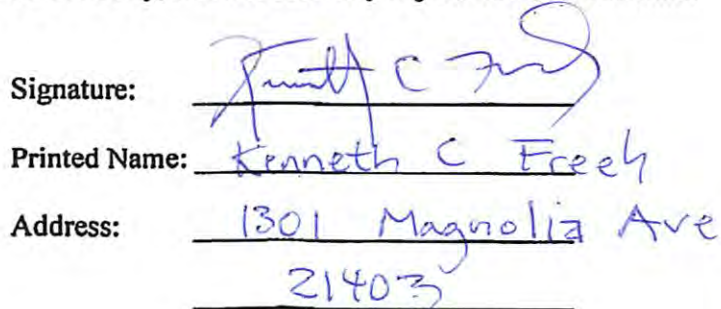 Signature: Kenneth C Freeh
Printed Name: Kenneth C Freeh
Address: 1301 Magnolia Ave
21403